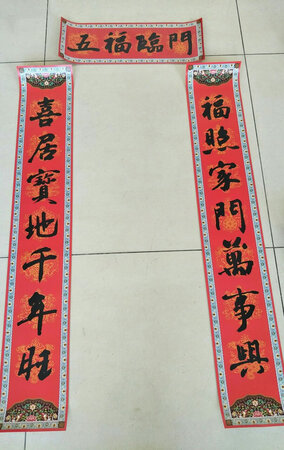 五福臨門
福照家門萬事興
喜居寶地千年旺